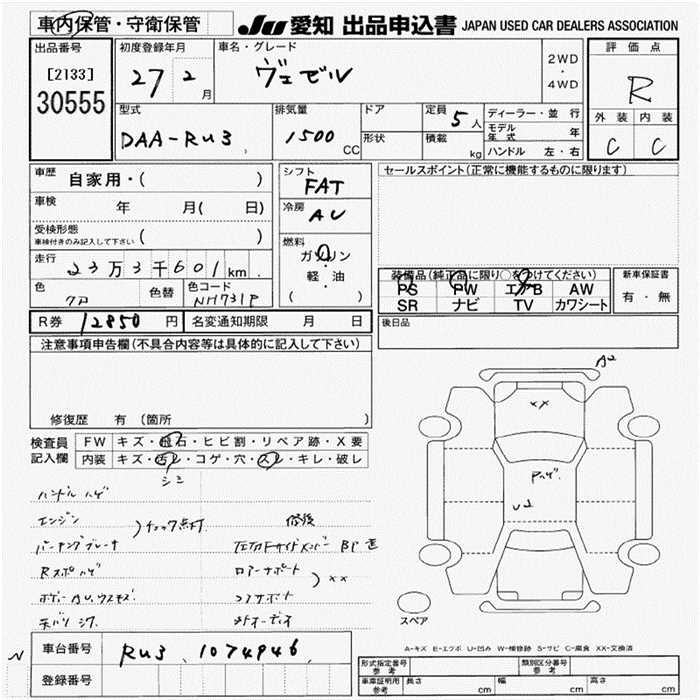 車内保管・守衛保管
JU 愛知 出品申込書 JAPAN USED CAR DEALERS ASSOCIATION
出品番号
[2133]
30555
初度登録年月
27 2 月
車名・グレード
ヴェゼル
2WD
・
4WD
評価点
R
外装 内装
C C
型式
DAA-RU3
排気量
1500 CC
ドア
形状
定員 5 人
積載 kg
ディーラー・並行
モデル年式 年
ハンドル 左・右
車歴 自家用・( )
車検 年 月( 日)
受検形態
車検付きのみ記入して下さい ( )
走行 23万3千601 km
色 クロ
色替
色コード NH731P
シフト
FAT
冷房
AU
燃料
ガソリン
軽・油
( )
セールスポイント(正常に機能するものに限ります)
装備品(純正品に限り○をつけてください)
PS PW エアB AW
SR ナビ TV カワシート
新車保証書
有・無
R券 12850 円
名変通知期限 月 日
後日品
注意事項申告欄(不具合内容等は具体的に記入して下さい)
修復歴 有 (箇所 )
検査員
記入欄
FW キズ・飛石・ヒビ割・リペア跡・X要
内装 キズ・汚レ・コゲ・穴・スレ・キレ・破レ
シミ
ハンドルハゲ
エンジン
パーキングブレーキ
チェック点灯
Rスポハゲ
修後
ロアーサポート
コアサポート
xx
オーディオ
A2
xx
Pハゲ
U2
スペア
A-キズ E-エクボ U-凹み W-補修跡 S-サビ C-腐食 XX-交換済
車台番号 RU3 1074946
登録番号
型式指定番号
参考
類別区分番号
参考
車庫証明用
参考
長さ cm 幅 cm 高さ cm